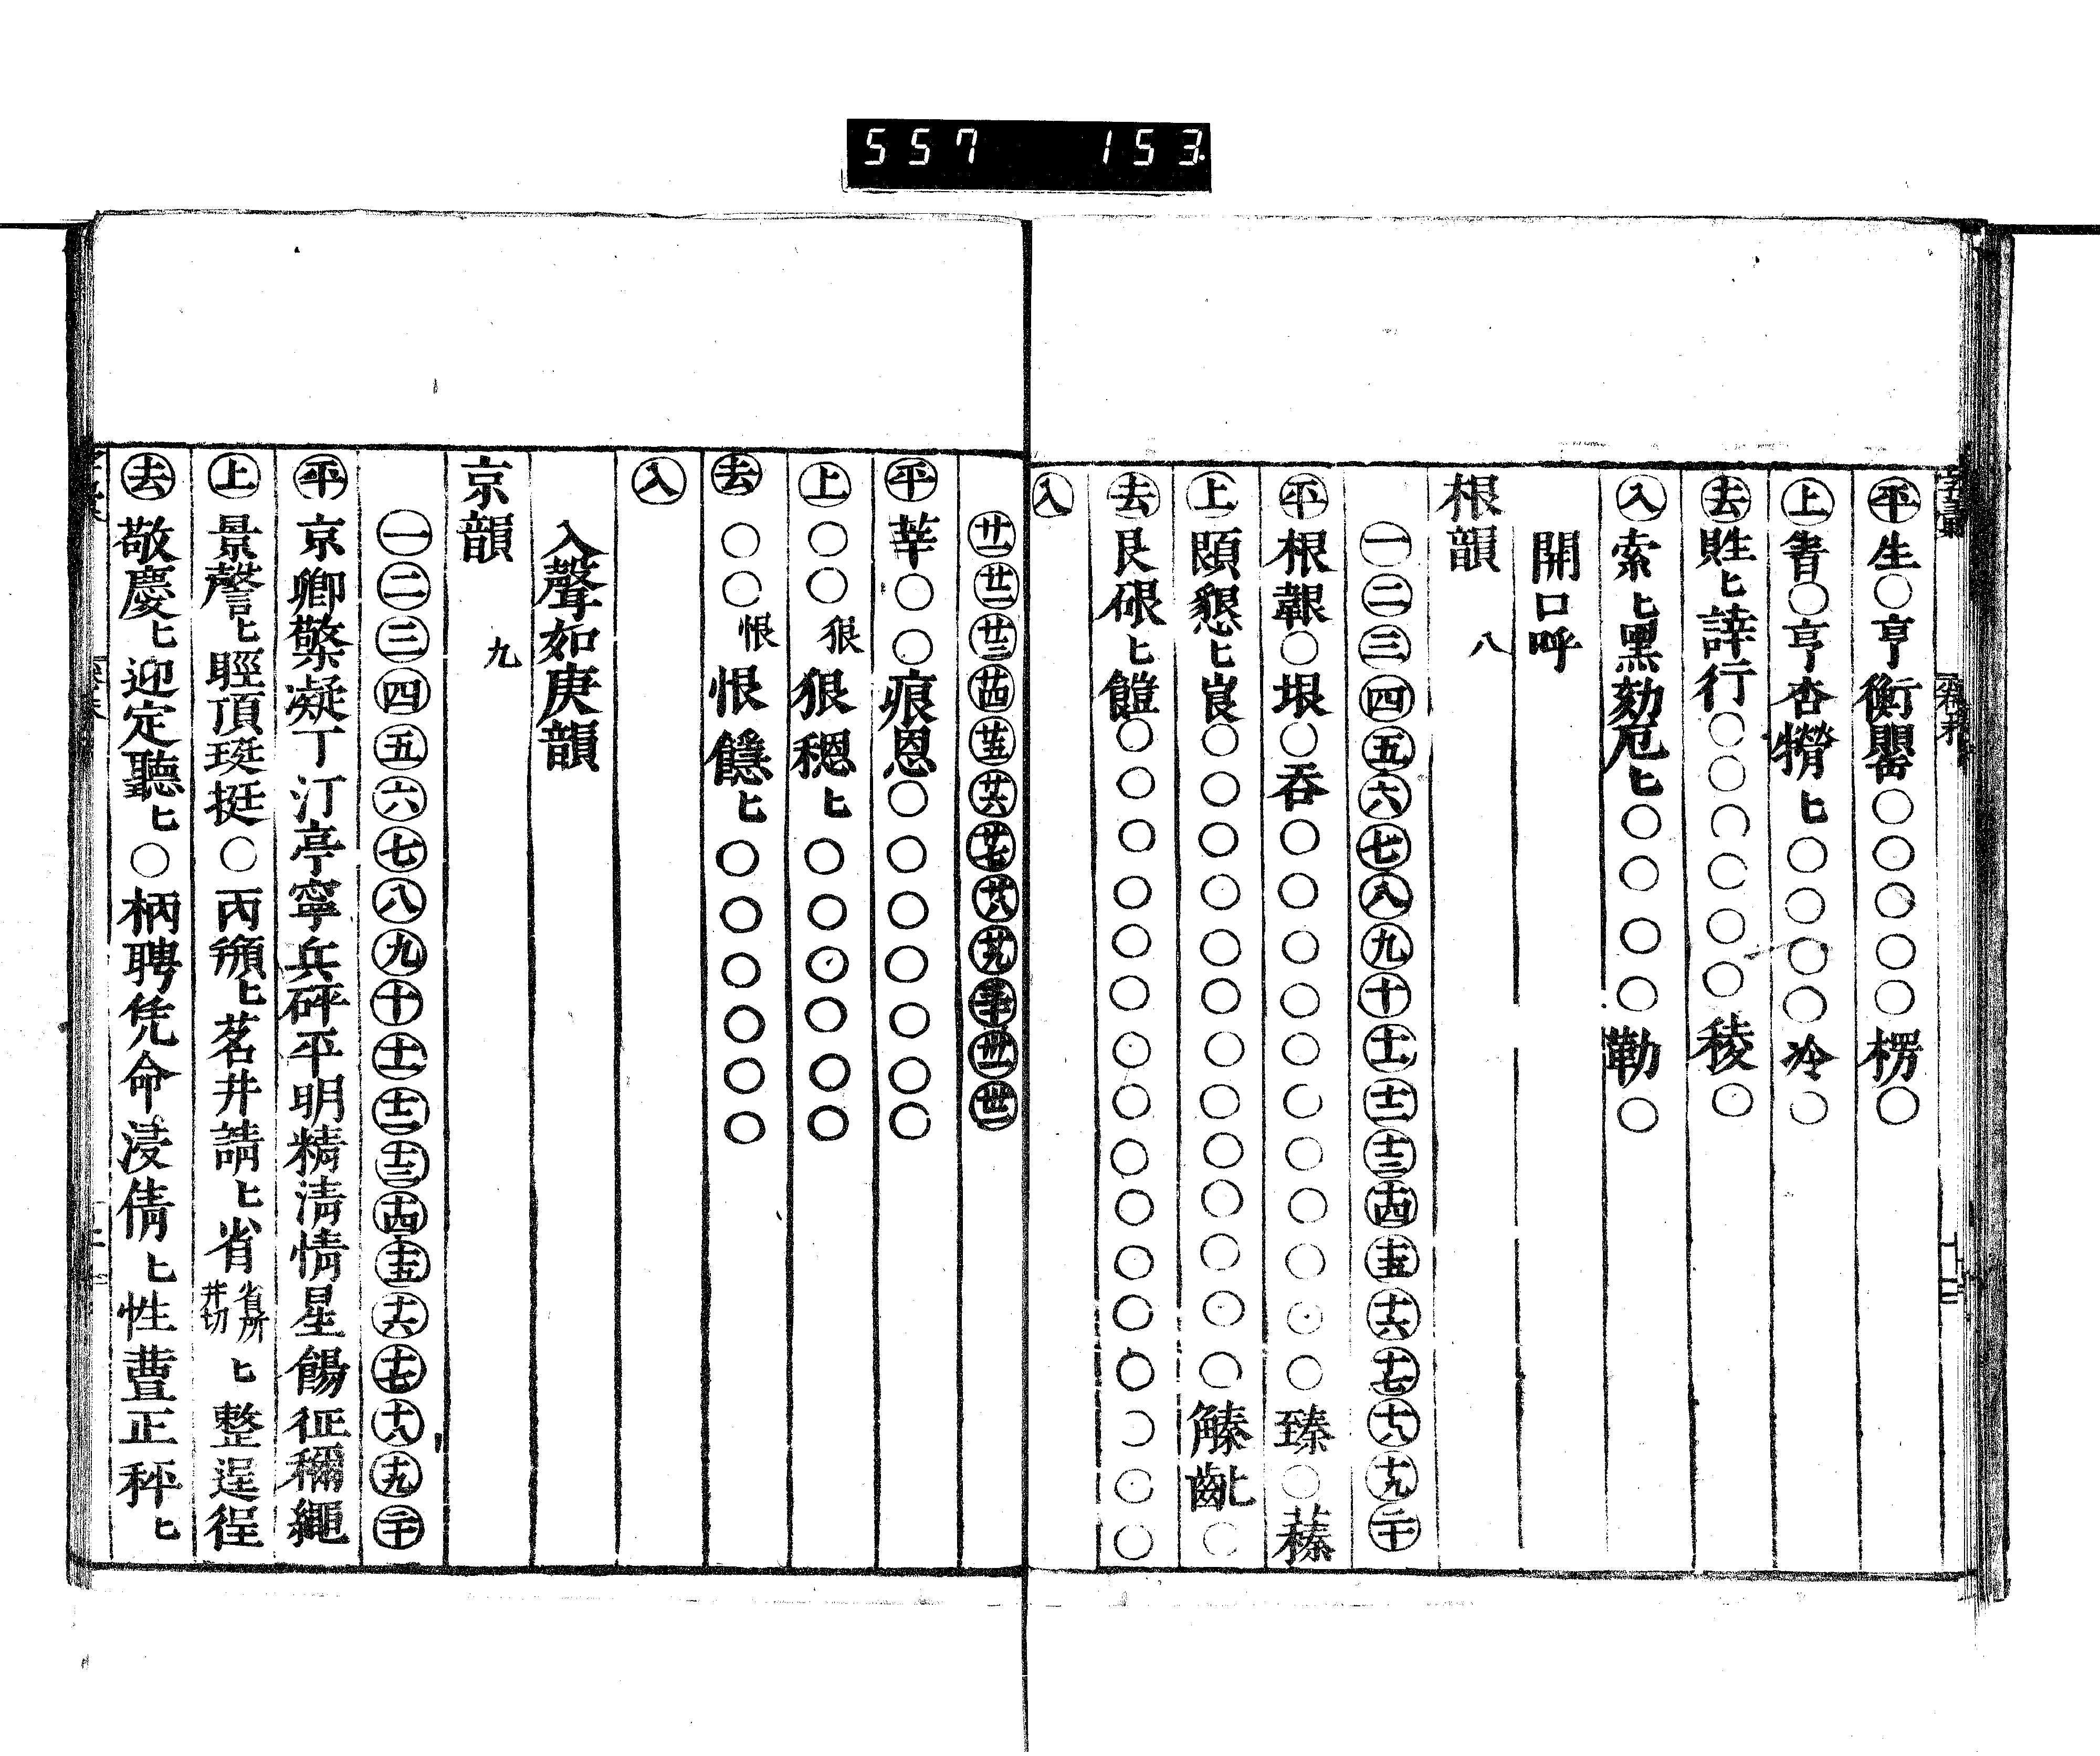 557 153
㊤平 生○亨衡罌○○○○○楞○
上 眚○亨杏㸤ヒ○○○○冷○
去 貹ヒ誶行○○○○○○稜○
入 索ヒ黑劾厄ヒ○○○○勒○
開口呼
根韻 八
一二三四五六七八九十十一十二十三十四十五十六十七十八十九二十
平 根報○垠○吞○○○○○○○○○○○臻○蓁
上 頤懇ヒ㟴○○○○○○○○○○○○○齔ヒ○
去 艮硍ヒ饐○○○○○○○○○○○○○○○○
入
廿一廿二廿三廿四廿五廿六廿七廿八廿九三十卅一卅二
平 莘○○痕恩○○○○○○○
上 ○○狠 狠穏ヒ○○○○○○
去 ○○恨 恨㥯ヒ○○○○○○
入
入聲如庚韻
京韻 九
一二三四五六七八九十十一十二十三十四十五十六十七十八十九二十
平 京卿擎凝丁汀亭寧兵砰平明精淸情星餳征稱繩
上 景謦ヒ脛頂珽挺○丙頩ヒ茗井請ヒ省 省所井切 ヒ整逞徎
去 敬慶ヒ迎定聽ヒ○柄聘凭命浸倩ヒ性䔰正秤ヒ